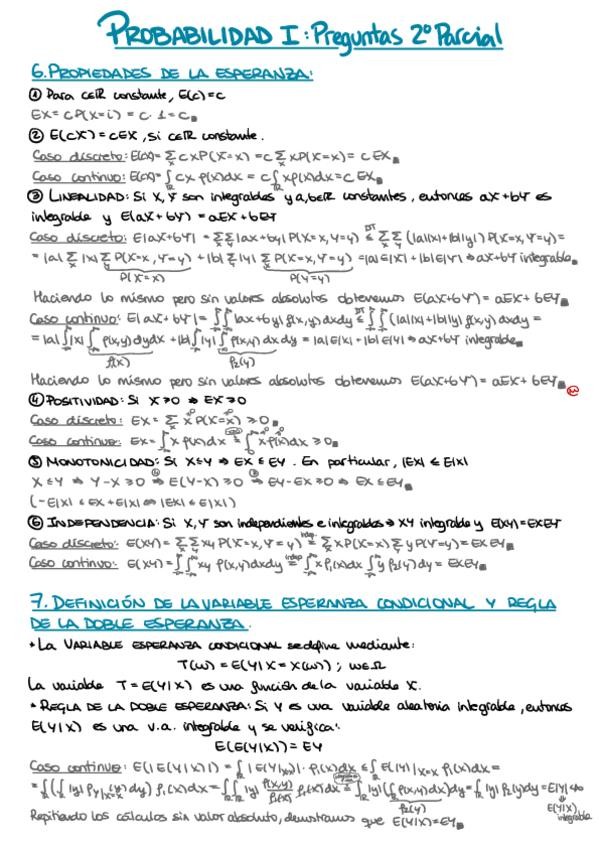 PROBABILIDAD I: Preguntas 2º Parcial
6. PROPIEDADES DE LA ESPERANZA:
① Para c∈ℝ constante, E(c)=c
EX = cP(X=i) = c·1 = c
② E(cX) = cEX, si c∈ℝ constante.
Caso discreto: E(cX) = Σ_x c x P(X=x) = c Σ_x x P(X=x) = c EX
Caso continuo: E(cX) = ∫_ℝ c x f(x)dx = c ∫_ℝ x f(x)dx = c EX
③ LINEALIDAD: Si X, Y son integrables y a,b∈ℝ constantes, entonces aX+bY es
integrable y E(aX+bY) = aEX + bEY
Caso discreto: E|aX+bY| = Σ_x Σ_y |ax+by| P(X=x, Y=y) ≤^DT Σ_x Σ_y (|a||x|+|b||y|) P(X=x, Y=y) =
= |a| Σ_x |x| Σ_y P(X=x, Y=y) + |b| Σ_y |y| Σ_x P(X=x, Y=y) = |a|E|X| + |b|E|Y| ⇒ aX+bY integrable
P(X=x) P(Y=y)
Haciendo lo mismo pero sin valores absolutos obtenemos E(aX+bY) = aEX + bEY
Caso continuo: E|aX+bY| = ∫∫ |ax+by| f(x,y)dxdy ≤^DT ∫∫ (|a||x|+|b||y|) f(x,y)dxdy =
= |a| ∫ |x| ∫ f(x,y)dydx + |b| ∫ |y| ∫ f(x,y)dxdy = |a|E|X| + |b|E|Y| ⇒ aX+bY integrable
f₁(x) f₂(y)
Haciendo lo mismo pero sin valores absolutos obtenemos E(aX+bY) = aEX + bEY
④ POSITIVIDAD: Si X≥0 ⇒ EX≥0
Caso discreto: EX = Σ_x x P(X=x) ≥ 0
Caso continuo: EX = ∫ x f(x)dx = ∫ x f(x)dx ≥ 0
⑤ MONOTONICIDAD: Si X≤Y ⇒ EX ≤ EY. En particular, |EX| ≤ E|X|
X≤Y ⇒ Y-X≥0 ⇒^④ E(Y-X)≥0 ⇒^③ EY-EX≥0 ⇒ EX ≤ EY
(-E|X| ≤ EX ≤ +E|X| ⇔ |EX| ≤ E|X|)
⑥ INDEPENDENCIA: Si X, Y son independientes e integrables ⇒ XY integrable y E(XY)=EXEY
Caso discreto: E(XY) = Σ_x Σ_y xy P(X=x, Y=y) =^indep Σ_x x P(X=x) Σ_y y P(Y=y) = EX EY
Caso continuo: E(XY) = ∫∫ xy f(x,y)dxdy =^indep ∫ x f₁(x)dx ∫ y f₂(y)dy = EXEY
7. DEFINICIÓN DE LA VARIABLE ESPERANZA CONDICIONAL Y REGLA
DE LA DOBLE ESPERANZA.
• La VARIABLE ESPERANZA CONDICIONAL se define mediante:
T(ω) = E(Y|X = X(ω)); ω∈Ω
La variable T = E(Y|X) es una función de la variable X.
• REGLA DE LA DOBLE ESPERANZA: Si Y es una variable aleatoria integrable, entonces
E(Y|X) es una v.a. integrable y se verifica:
E(E(Y|X)) = EY
Caso continuo: E(|E(Y|X)|) = ∫_ℝ |E(Y|X=x)|· f₁(x)dx ≤ ∫_ℝ E(|Y| |X=x) f₁(x)dx =
= ∫_ℝ (∫_ℝ |y| f_{Y|X=x}(y)dy) f₁(x)dx = ∫_ℝ ∫_ℝ |y| f(x,y)/f₁(x) f₁(x)dx = ∫_ℝ |y| (∫_ℝ f(x,y)dx)dy = ∫_ℝ |y| f₂(y)dy = E|Y| < ∞
f₂(y) ⇓ E(Y|X) integrable
Repitiendo los cálculos sin valor absoluto, demostramos que E(Y|X)=EY